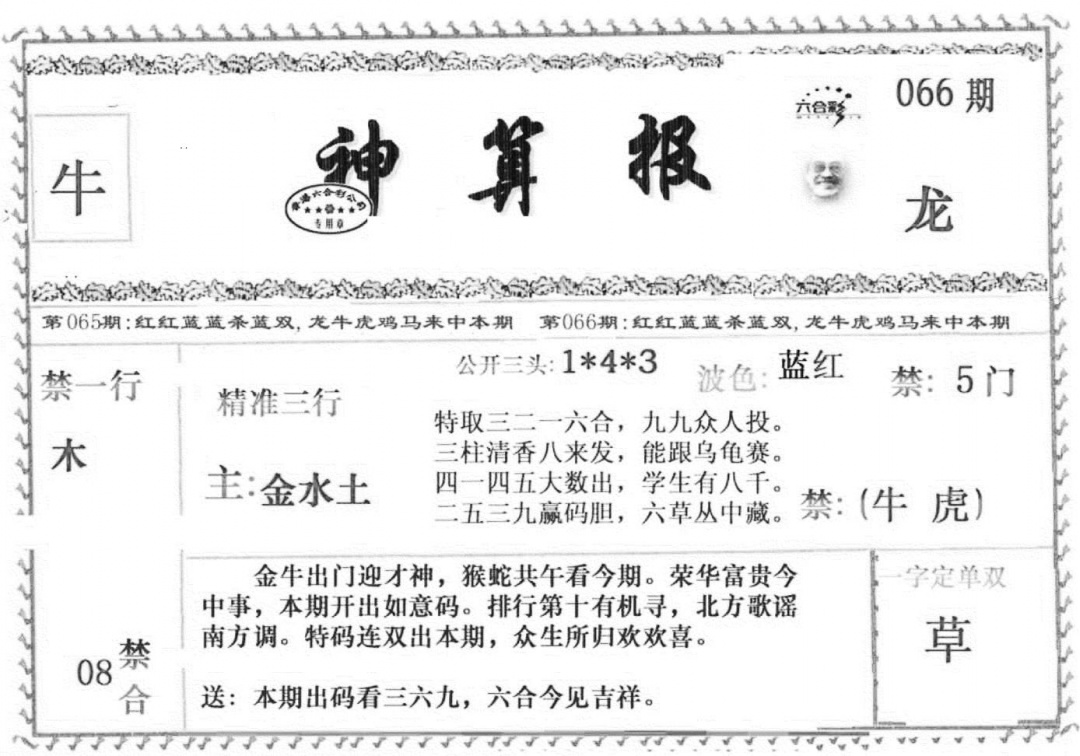 六合彩
066 期
牛
神算报
香港六合彩公司
专用章
龙
第065期:红红蓝蓝杀蓝双,龙牛虎鸡马来中本期 第066期:红红蓝蓝杀蓝双,龙牛虎鸡马来中本期
禁一行
木
精准三行
主:金水土
公开三头:1*4*3
波色:蓝红
禁: 5门
特取三二一六合，九九众人投。
三柱清香八来发，能跟乌龟赛。
四一四五大数出，学生有八千。
二五三九赢码胆，六草丛中藏。
禁:(牛 虎)
08
禁
合
金牛出门迎才神，猴蛇共午看今期。荣华富贵今
中事，本期开出如意码。排行第十有机寻，北方歌谣
南方调。特码连双出本期，众生所归欢欢喜。
送：本期出码看三六九，六合今见吉祥。
一字定单双
草